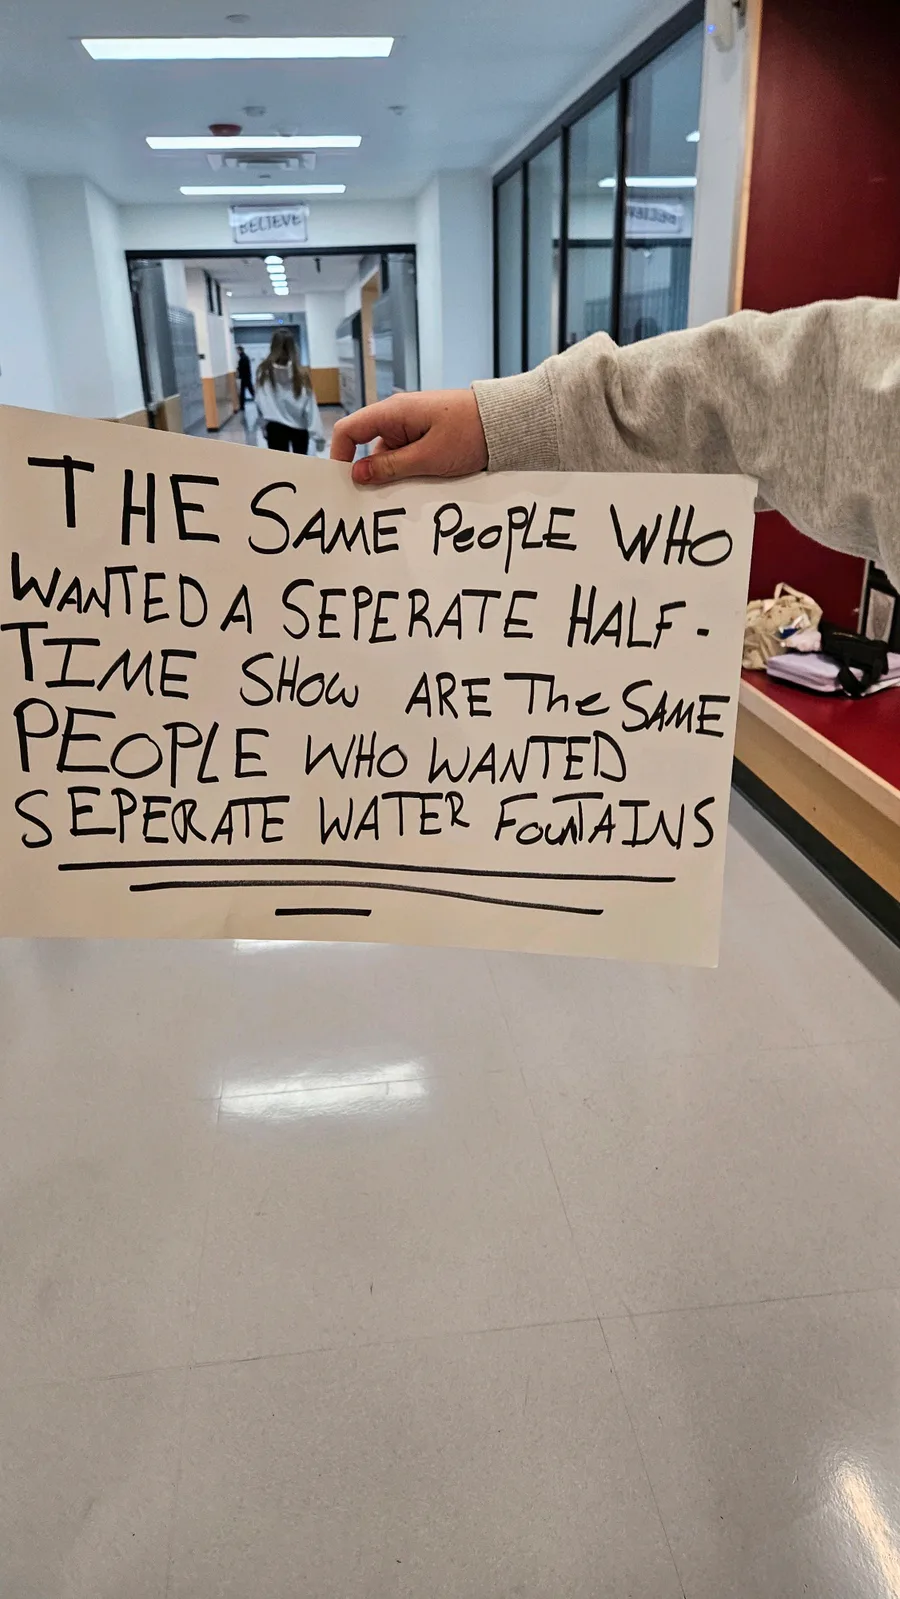 BELIEVE
THE SAME PeoPLE WHO
WANTED A SEPERATE HALF-
TIME SHOW ARE The SAME
PEOPLE WHO WANTED
SEPERATE WATER FOUNTAINS